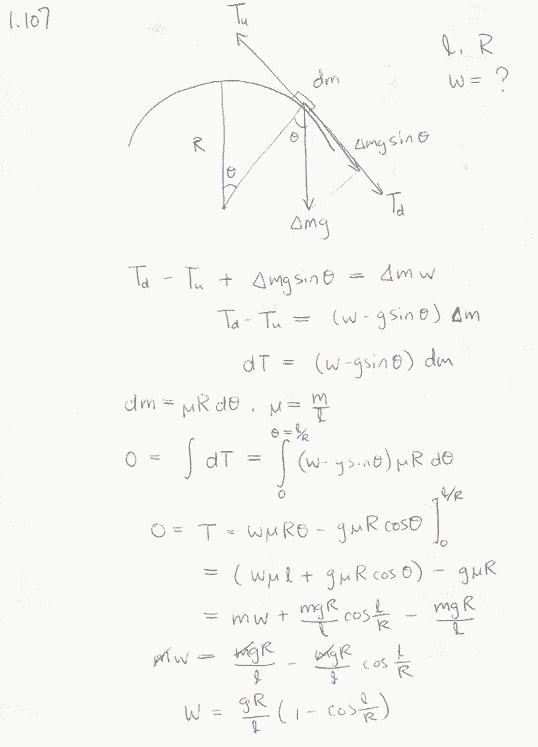 1.107
T_u
dm
l, R
w = ?
R
θ
θ
Δmg sin θ
T_d
Δmg
T_d - T_u + Δmg sin θ = Δm w
T_d - T_u = (w - g sin θ) Δm
dT = (w - g sin θ) dm
dm = μR dθ, μ = m/l
0 = ∫ dT = ∫_0^{θ = l/R} (w - g sin θ) μR dθ
0 = T = wμRθ - gμR cos θ ]_0^{l/R}
= (wμl + gμR cos θ) - gμR
= mw + mgR/l cos l/R - mgR/l
mw = mgR/l - mgR/l cos l/R
w = gR/l (1 - cos l/R)